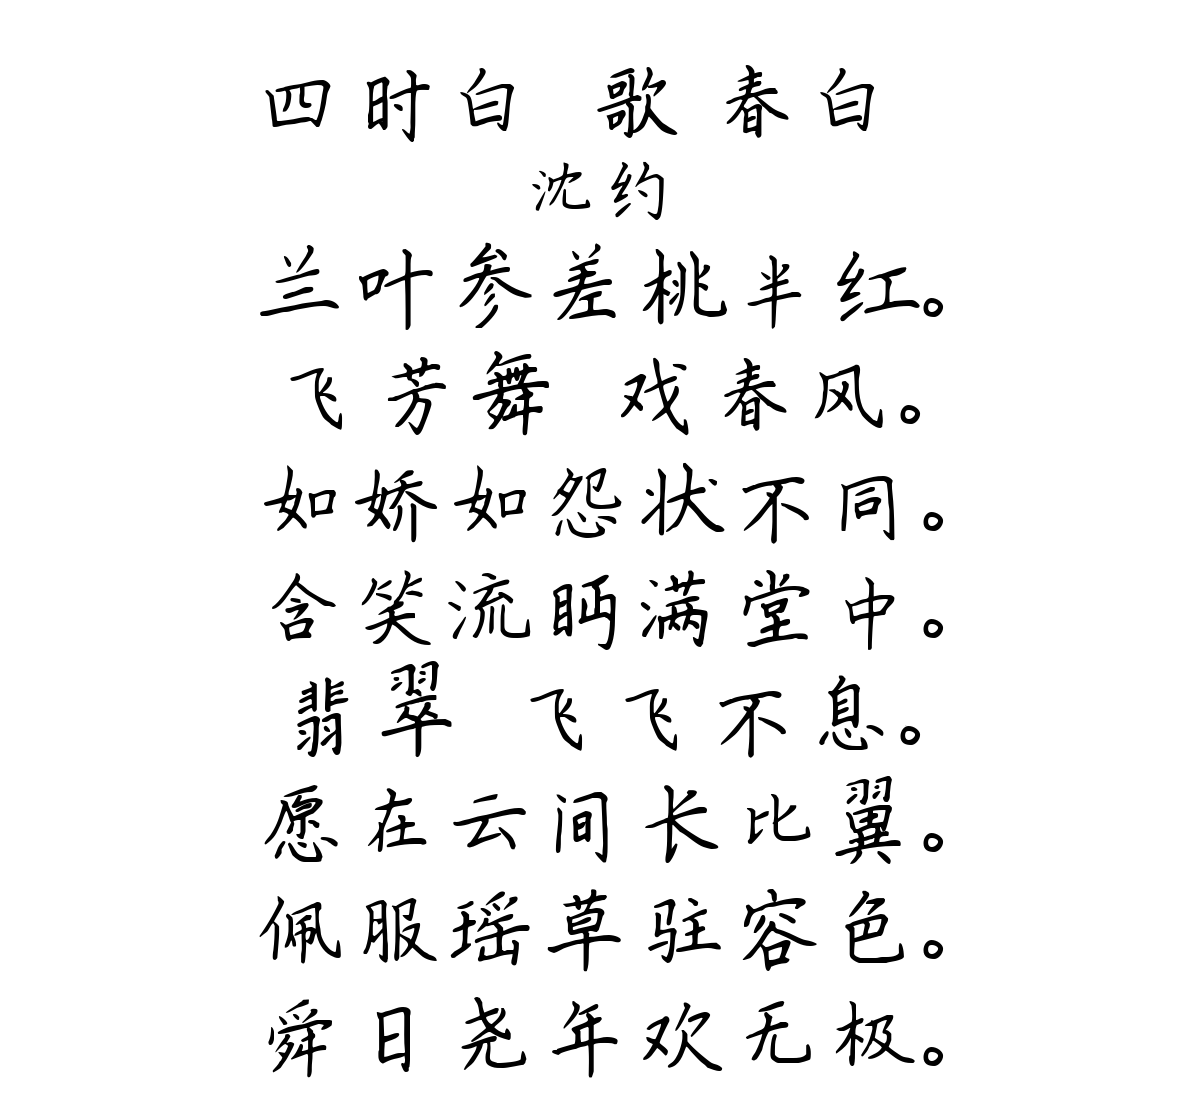 四时白 歌 春白
沈约
兰叶参差桃半红。
飞芳舞 戏春风。
如娇如怨状不同。
含笑流眄满堂中。
翡翠 飞飞不息。
愿在云间长比翼。
佩服瑶草驻容色。
舜日尧年欢无极。